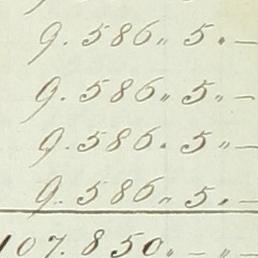 9. 586 „ 5 „ —
9. 586 „ 5 „ —
9. 586 „ 5 „ —
9. 586 „ 5 „ —
107. 850 „ — „ —